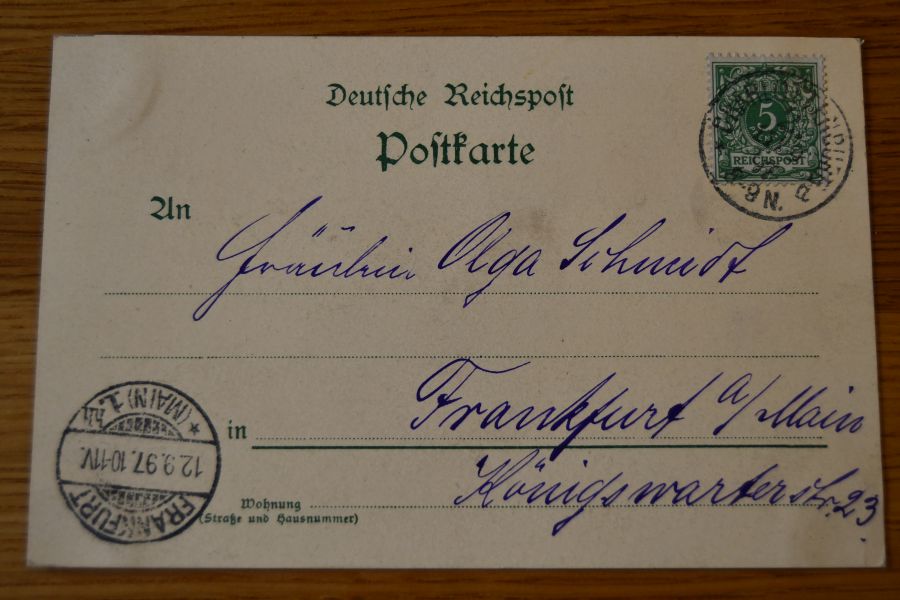 Deutsche Reichspost
Postkarte
5
REICHSPOST
An
Fräulein Olga Schmidt
in Frankfurt a/Main
Wohnung
(Straße und Hausnummer)
Königswarterstr. 23.
FRANKFURT
(MAIN) 1.
12.9.97. 10-11V.